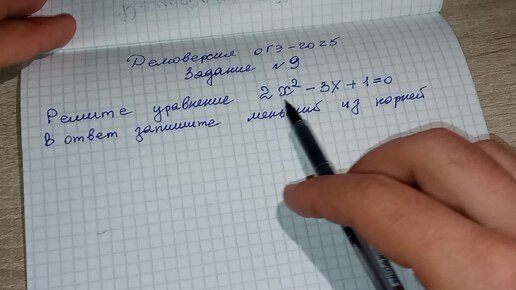 Демоверсия ОГЭ-2025
Задание №9
Решите уравнение 2x² - 3x + 1 = 0
В ответ запишите меньший из корней